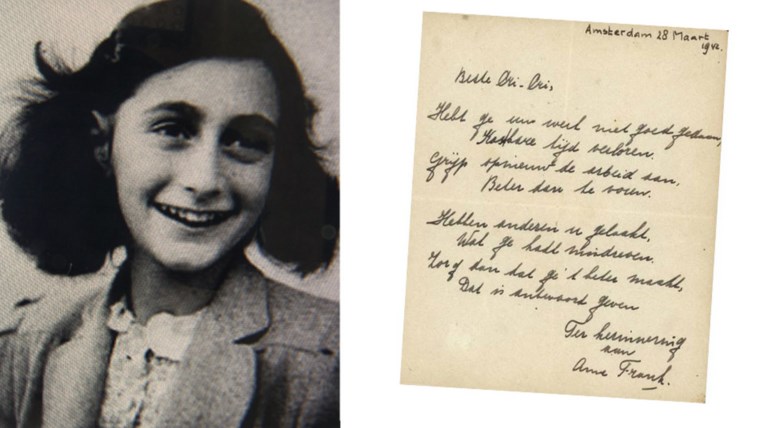 Amsterdam 28 Maart
1942.
Beste Cri-Cri,
Hebt ge uw werk niet goed gedaan,
Kostbare tijd verloren.
Grijp opnieuw de arbeid aan.
Beter dan te voren.
Hebben anderen u gelaakt,
Wat ge hadt misdreven.
Zorg dan dat ge 't beter maakt,
Dat is antwoord geven
Ter herinnering
aan
Anne Frank.